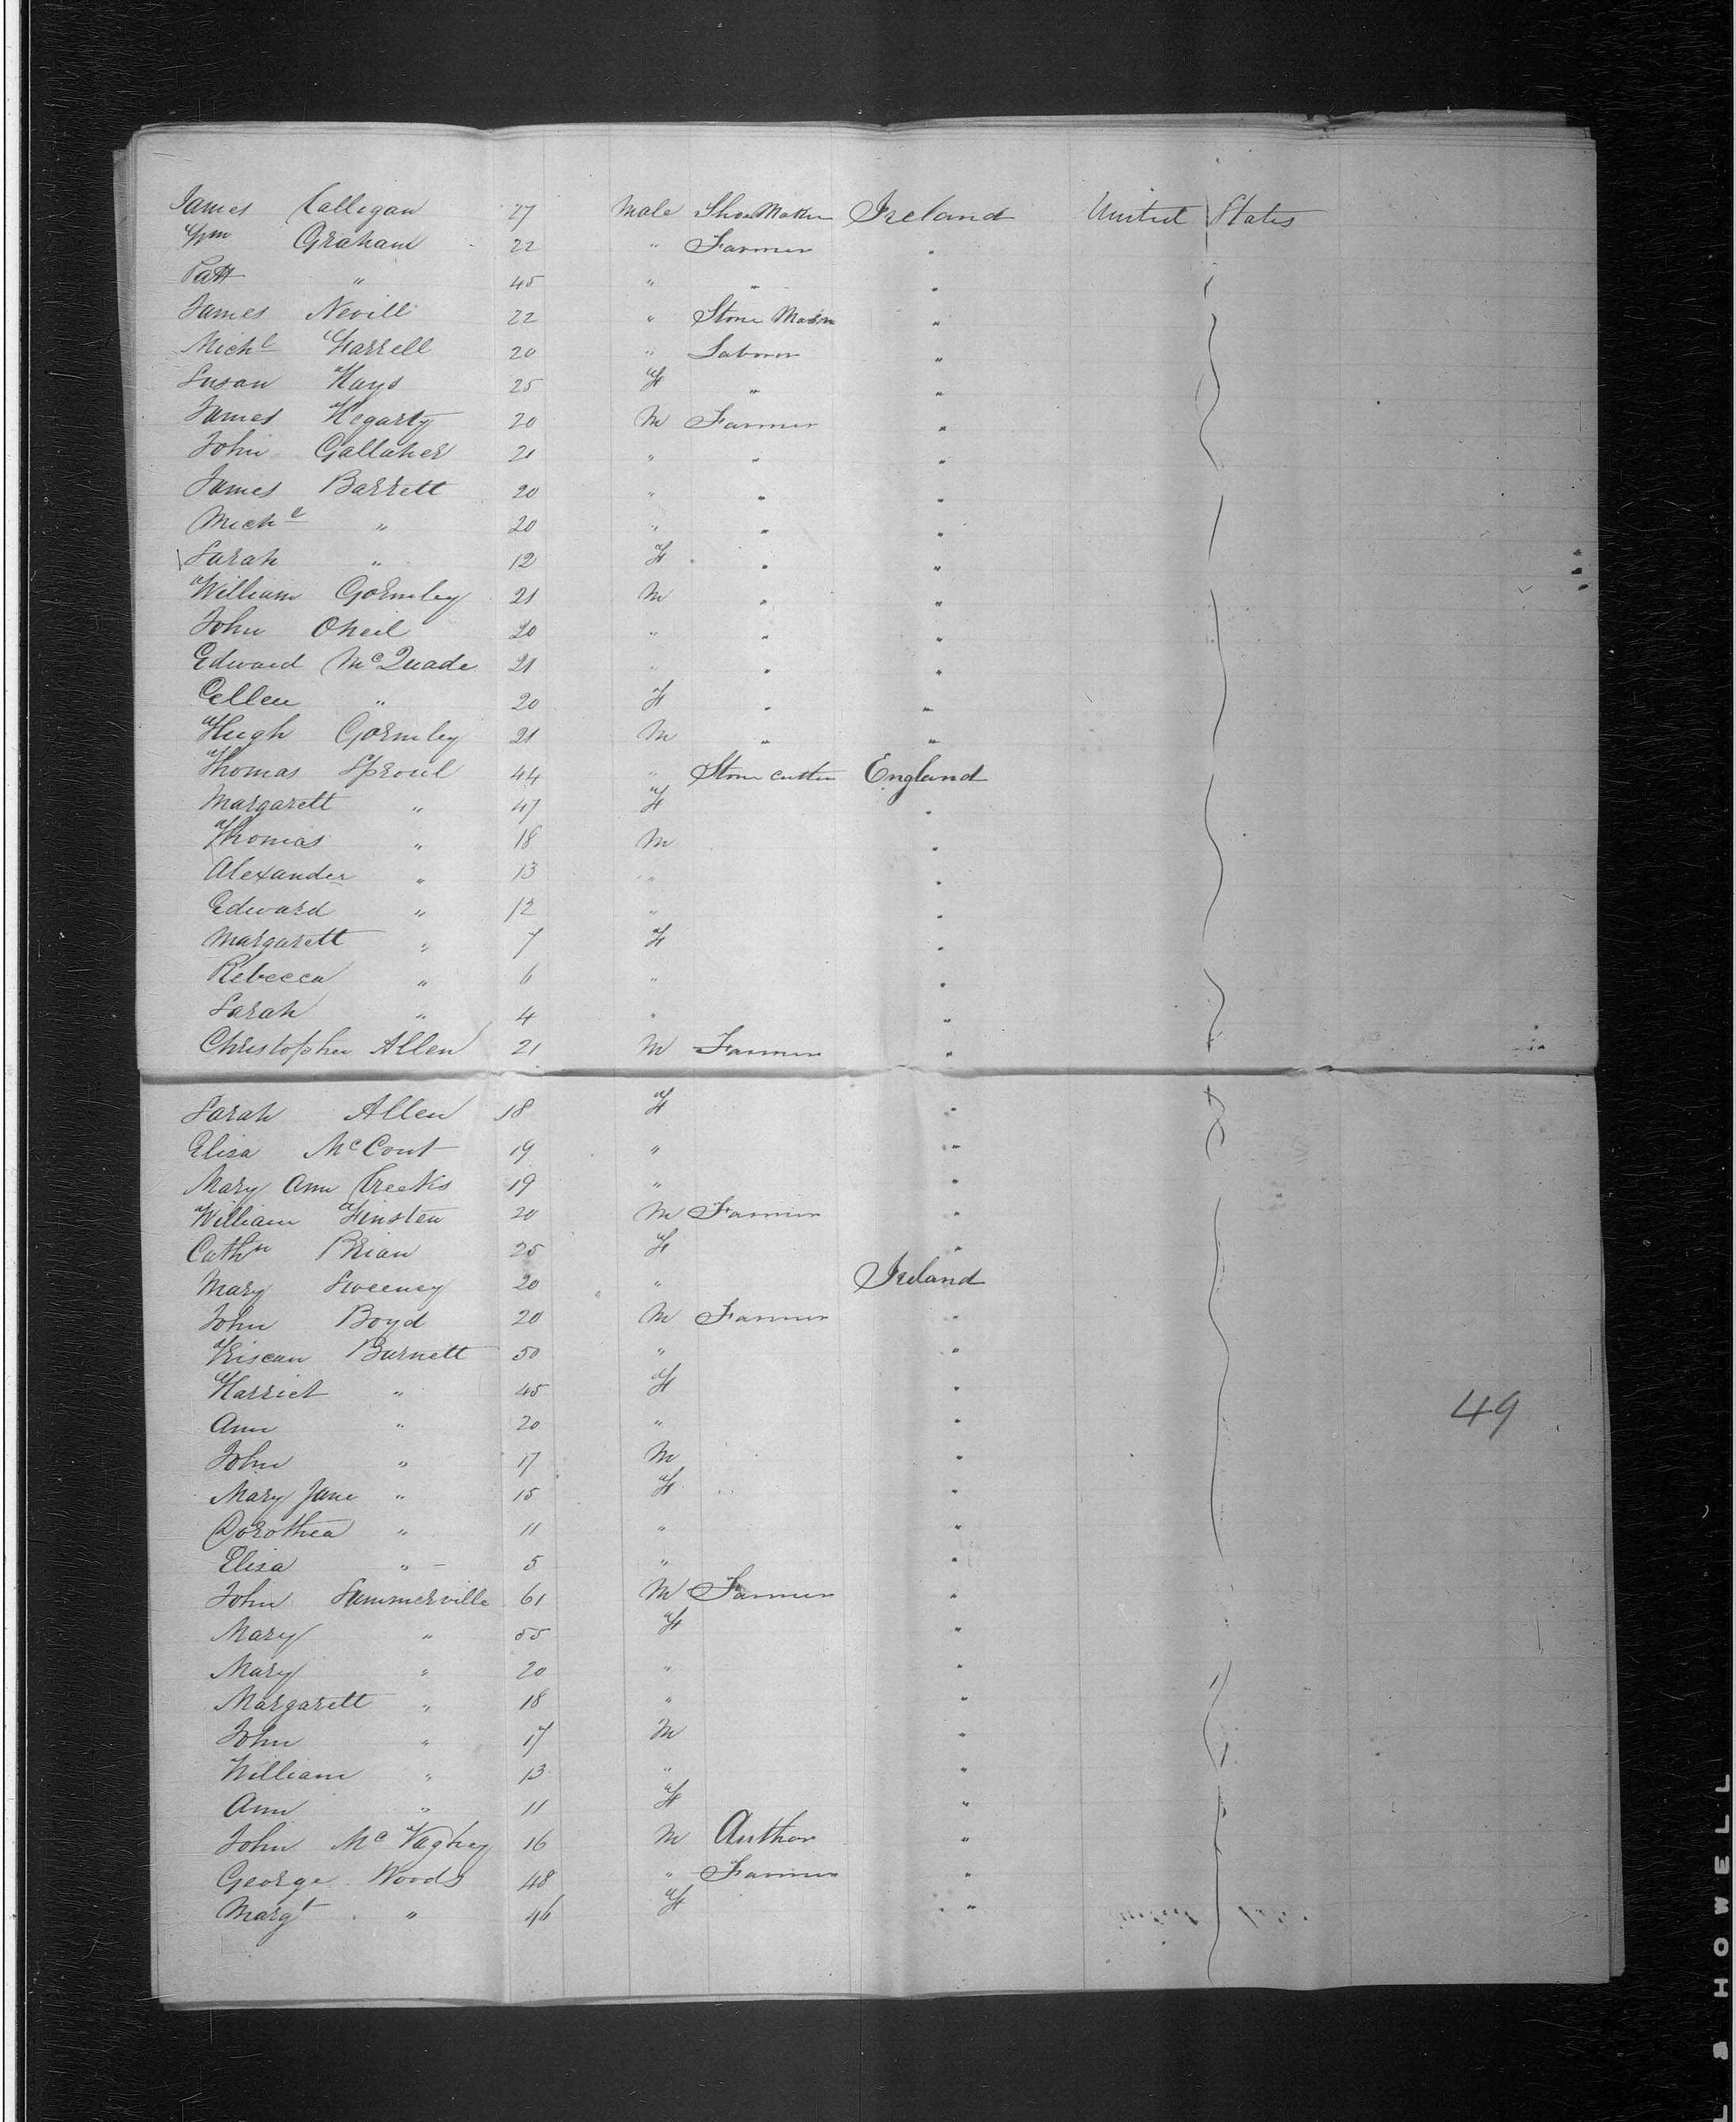 James Calligan 27 Male Shoe Maker Ireland United States
Wm Graham 22 " Farmer "
Patt " 45 " " "
James Nevill 22 " Stone Mason "
Michl Farrell 20 " Laborer "
Susan Hays 25 F " "
James Hegarty 20 M Farmer "
John Gallaher 21 " " "
James Barrett 20 " " "
Michl " 20 " " "
Sarah " 12 F " "
William Gormley 21 M " "
John Oneil 20 " " "
Edward McQuade 21 " " "
Ellen " 20 F " "
Hugh Gormley 21 M " "
Thomas Sproul 44 " Stone cutter England
Margarett " 47 F "
Thomas " 18 M "
Alexander " 13 " "
Edward " 12 " "
Margarett " 7 F "
Rebecca " 6 " "
Sarah " 4 " "
Christopher Allen 21 M Farmer "
Sarah Allen 18 F "
Eliza McCont 19 " "
Mary Ann Creeks 19 " "
William Finsten 20 M Farmer "
Cathn Brian 25 F "
Mary Sweeney 20 " Ireland
John Boyd 20 M Farmer "
Burnett 50 " "
Harriet " 45 F "
49
Ann " 20 " "
John " 17 M "
Mary Jane " 15 F "
Dorothea " 11 " "
Eliza " 5 " "
John Summerville 61 M Farmer "
Mary " 55 F "
Mary " 20 " "
Margarett " 18 " "
John " 17 M "
William " 13 " "
Ann " 11 F "
John McVaghey 16 M Author "
George Woods 48 " Farmer "
Margt " 46 F "
S HOWELL